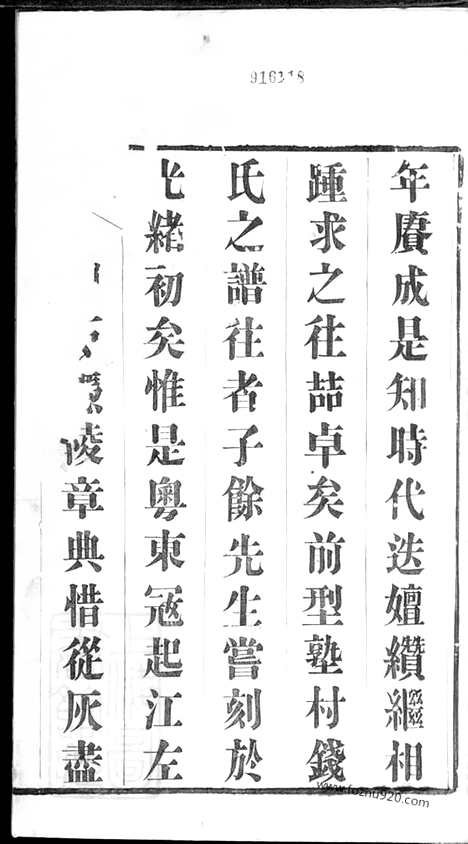 916318
年賡成是知時代迭嬗纘繼相
踵求之往喆卓矣前型塾村錢
氏之譜往者子餘先生嘗刻於
緒初矣惟是粵東冦起江左
陵章典惜從灰盡
www.fozhu920.com